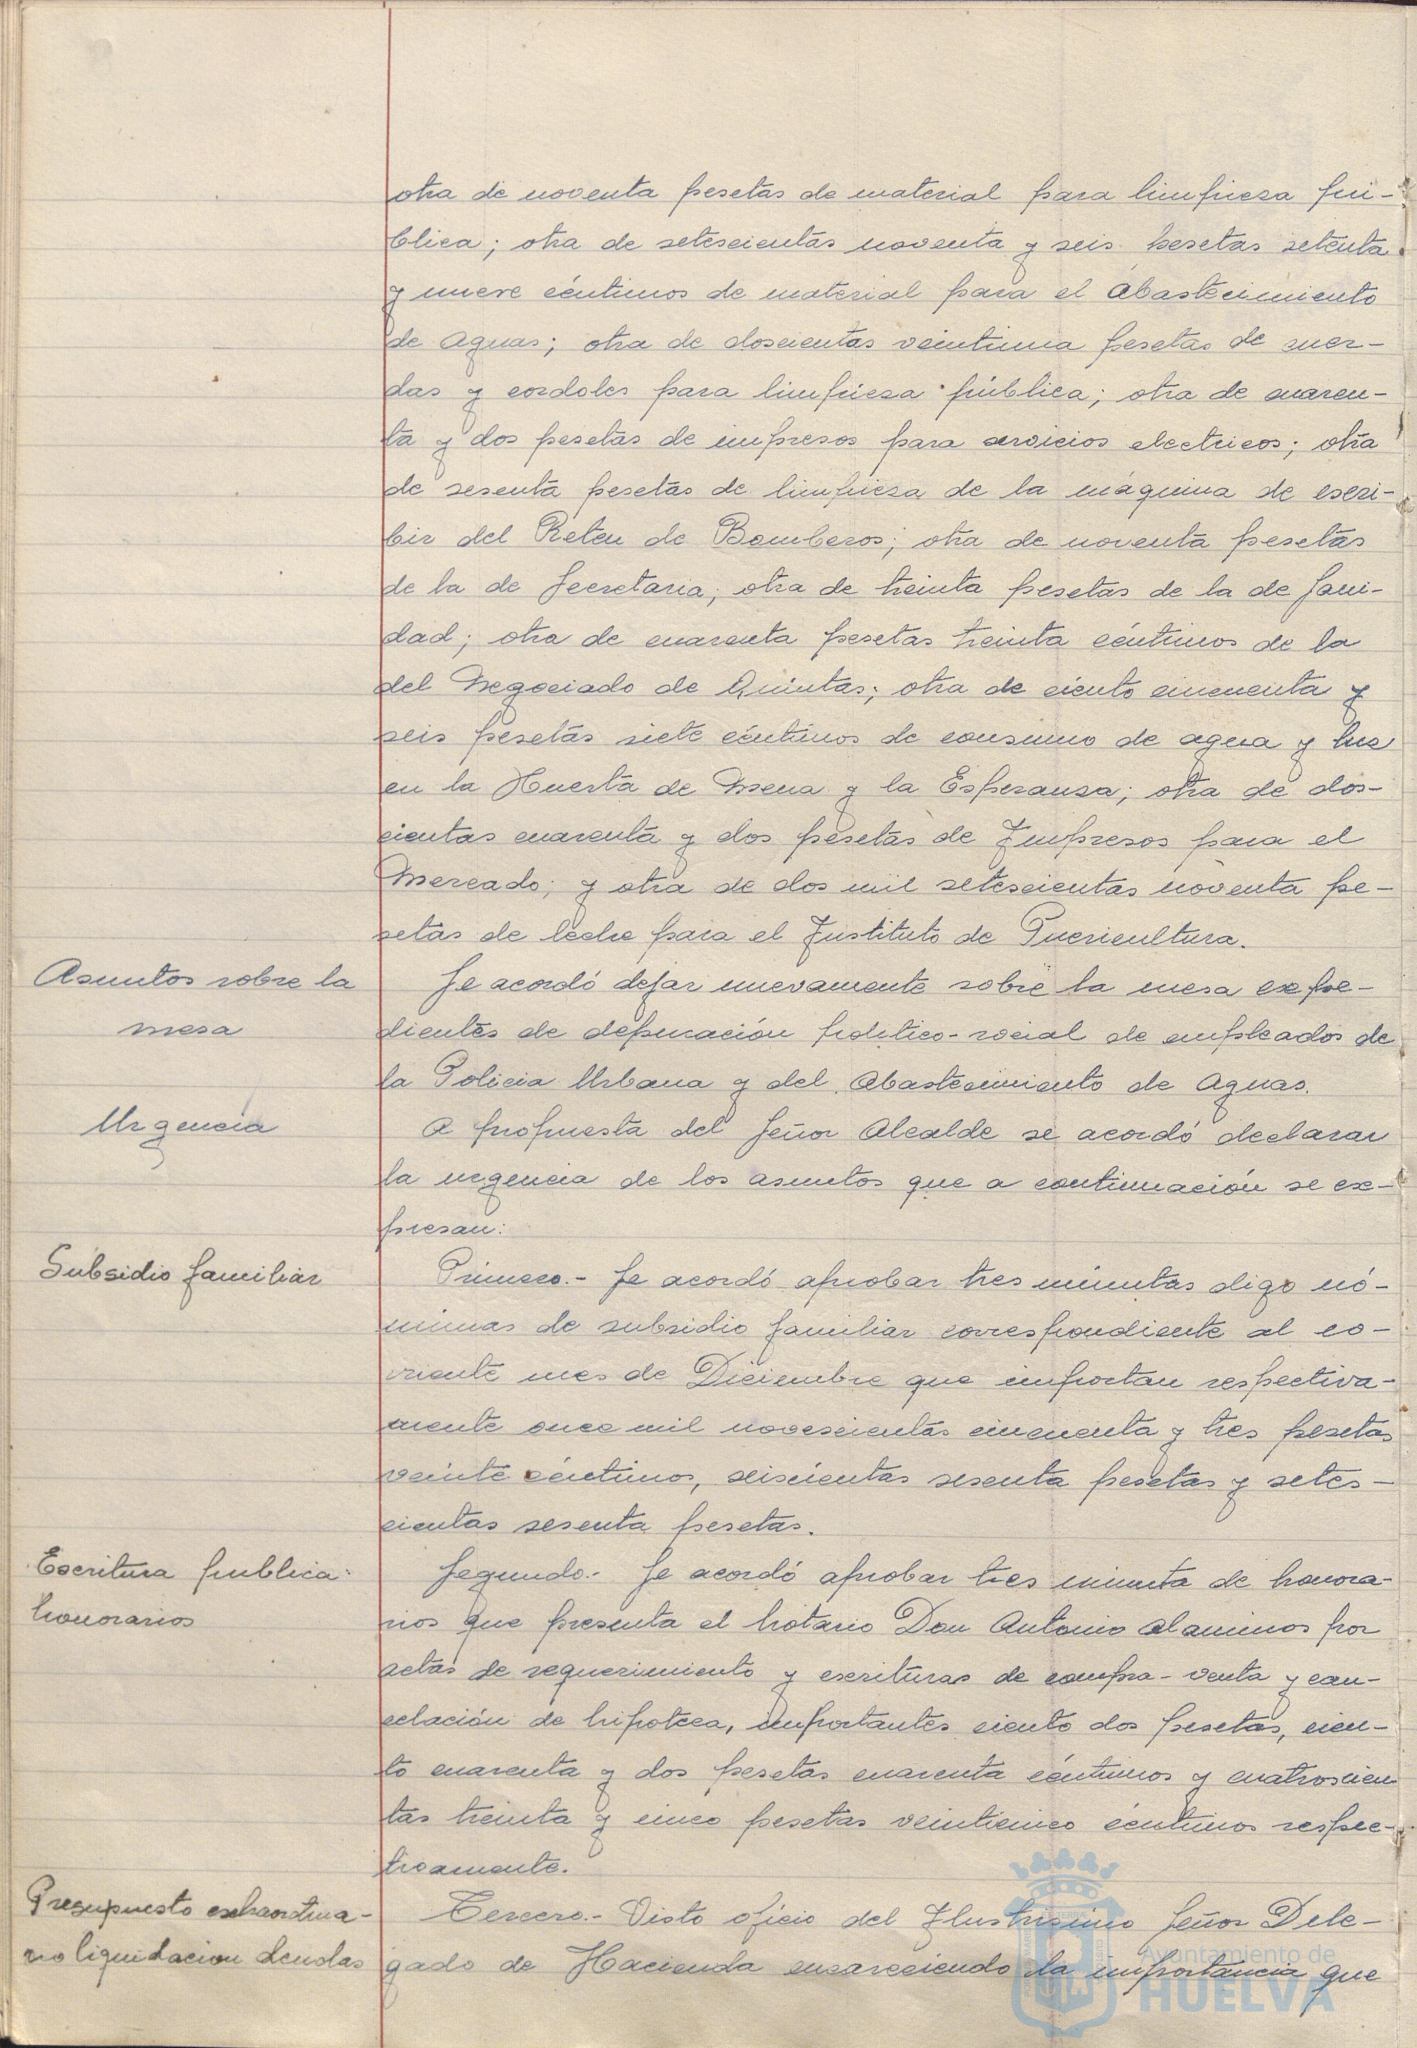 otra de noventa pesetas de material para limpieza pú-
blica; otra de setescientas noventa y seis pesetas setenta
y nueve céntimos de material para el Abastecimiento
de Aguas; otra de doscientas veintiuna pesetas de cuer-
das y cordeles para limpieza pública; otra de cuaren-
ta y dos pesetas de impresos para servicios electricos; otra
de sesenta pesetas de limpieza de la máquina de escri-
bir del Reten de Bomberos; otra de noventa pesetas
de la de Secretaria; otra de treinta pesetas de la de Sani-
dad; otra de cuarenta pesetas treinta céntimos de la
del Negociado de Quintas; otra de ciento cincuenta y
seis pesetas siete céntimos de consumo de agua y luz
en la Huerta de Mena y la Esperanza; otra de dos-
cientas cuarenta y dos pesetas de Impresos para el
Mercado; y otra de dos mil setescientas noventa pe-
setas de leche para el Instituto de Puericultura.
Asuntos sobre la
mesa
Se acordó dejar nuevamente sobre la mesa expe-
dientes de depuración politico-social de empleados de
la Policia Urbana y del Abastecimiento de Aguas.
Urgencia
A propuesta del Señor Alcalde se acordó declarar
la urgencia de los asuntos que a continuación se ex-
presan:
Subsidio familiar
Primero.- Se acordó aprobar tres minutas digo nó-
minas de subsidio familiar correspondiente al co-
rriente mes de Diciembre que importan respectiva-
mente once mil novescientas cincuenta y tres pesetas
veinte céntimos, seiscientas sesenta pesetas y setes-
cientas sesenta pesetas.
Escritura publica:
honorarios
Segundo.- Se acordó aprobar tres minuta de honora-
rios que presenta el Notario Don Antonio Alaminos por
actas de requerimiento y escrituras de compra-venta y can-
celación de hipoteca, importantes ciento dos pesetas, cien-
to cuarenta y dos pesetas cuarenta céntimos y cuatroscien
tas treinta y cinco pesetas veinticinco céntimos respec-
tivamente.
Presupuesto extraordina-
rio liquidacion deudas
Tercero.- Visto oficio del Ilustrisimo Señor Dele-
gado de Hacienda encareciendo la importancia que
Ayuntamiento de
HUELVA